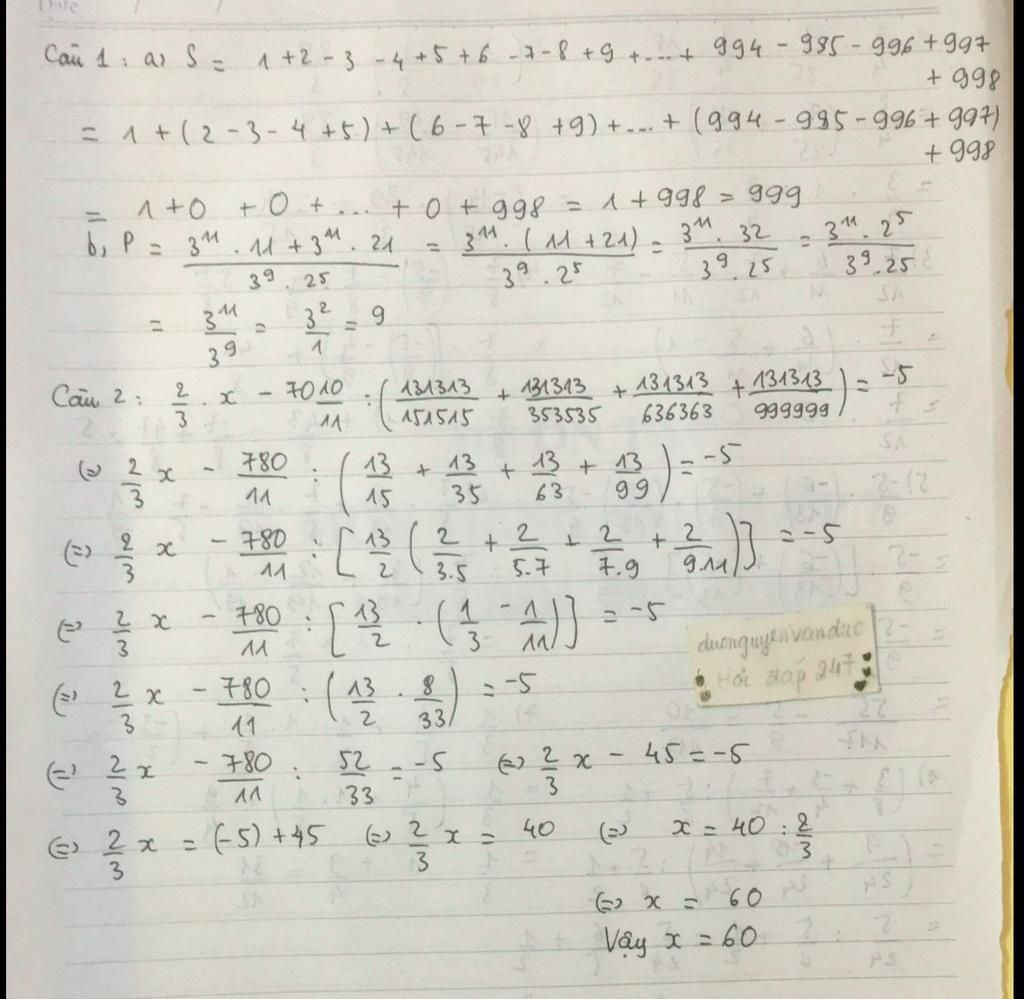 Date / /
Câu 1: a) S = 1 + 2 - 3 - 4 + 5 + 6 - 7 - 8 + 9 + ... + 994 - 995 - 996 + 997
+ 998
= 1 + (2 - 3 - 4 + 5) + (6 - 7 - 8 + 9) + ... + (994 - 995 - 996 + 997)
+ 998
= 1 + 0 + 0 + ... + 0 + 998 = 1 + 998 = 999
b, P = (3^11 . 11 + 3^11 . 21)/(3^9 . 2^5) = (3^11 . (11 + 21))/(3^9 . 2^5) = (3^11 . 32)/(3^9 . 2^5) = (3^11 . 2^5)/(3^9 . 2^5)
= 3^11/3^9 = 3^2/1 = 9
Câu 2: 2/3 . x - 70 10/11 : (131313/151515 + 131313/353535 + 131313/636363 + 131313/999999) = -5
(=) 2/3 x - 780/11 : (13/15 + 13/35 + 13/63 + 13/99) = -5
(=) 2/3 x - 780/11 : [13/2 (2/3.5 + 2/5.7 + 2/7.9 + 2/9.11)] = -5
(=) 2/3 x - 780/11 : [13/2 . (1/3 - 1/11)] = -5
duongnguyenvanduc
Hỏi đáp 247
(=) 2/3 x - 780/11 : (13/2 . 8/33) = -5
(=) 2/3 x - 780/11 : 52/33 = -5 (=) 2/3 x - 45 = -5
(=) 2/3 x = (-5) + 45 (=) 2/3 x = 40 (=) x = 40 : 2/3
(=) x = 60
Vậy x = 60